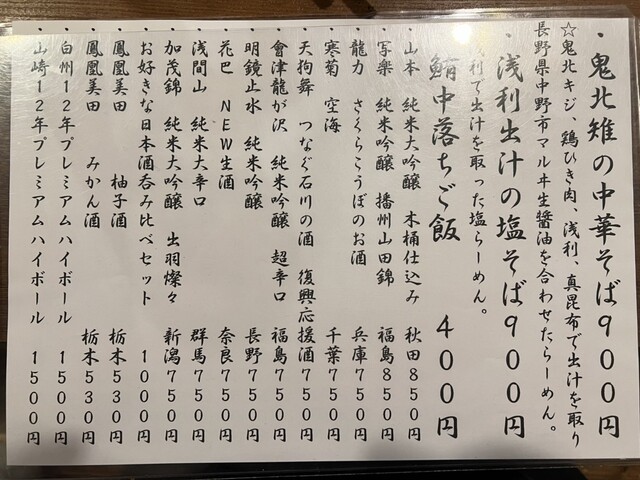 ・鬼北雉の中華そば９００円
☆鬼北キジ、鶏ひき肉、浅利、真昆布で出汁を取り
長野県中野市マルヰ生醬油を合わせたらーめん。
・浅利出汁の塩そば９００円
浅利で出汁を取った塩らーめん。
鮪中落ちご飯 ４００円
・山本 純米大吟醸 木桶仕込み 秋田８５０円
・写楽 純米吟醸 播州山田錦 福島８５０円
・龍力 さくらこうぼのお酒 兵庫７５０円
・寒菊 空海 千葉７５０円
・天狗舞 つなぐ石川の酒 復興応援酒７５０円
・會津龍が沢 純米吟醸 超辛口 福島７５０円
・明鏡止水 純米吟醸 長野７５０円
・花巴 ＮＥＷ生酒 奈良７５０円
・浅間山 純米大辛口 群馬７５０円
・加茂錦 純米大吟醸 出羽燦々 新潟７５０円
・お好きな日本酒呑み比べセット １０００円
・鳳凰美田 柚子酒 栃木５３０円
・鳳凰美田 みかん酒 栃木５３０円
・白州１２年プレミアムハイボール １５００円
・山崎１２年プレミアムハイボール １５００円